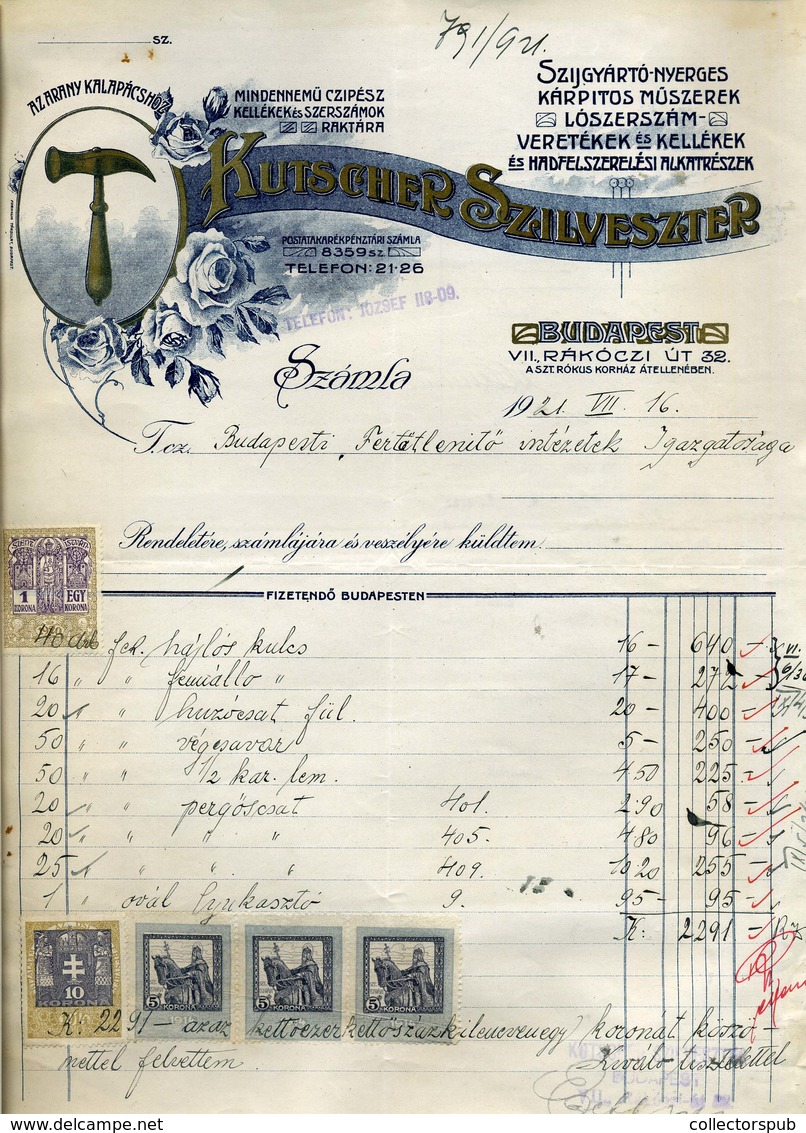 SZ.
791/921
AZ ARANY KALAPÁCSHOZ
MINDENNEMŰ CZIPÉSZ
KELLÉKEK és SZERSZÁMOK
RAKTÁRA
SZIJGYÁRTÓ-NYERGES
KÁRPITOS MŰSZEREK
LÓSZERSZÁM-
VERETÉKEK és KELLÉKEK
és HADFELSZERELÉSI ALKATRÉSZEK
KUTSCHER SZILVESZTER
POSTATAKARÉKPÉNZTÁRI SZÁMLA
8359 SZ.
TELEFON: 21-26
TELEFON: JÓZSEF 118-09.
BUDAPEST
VII., RÁKÓCZI ÚT 32.
A SZT. RÓKUS KORHÁZ ÁTELLENÉBEN.
Számla
1921. VII. 16.
T. cz. Budapesti Fertőtlenitő intézetek Igazgatósága
Rendeletére, számlájára és veszélyére küldtem.
FIZETENDŐ BUDAPESTEN
SZENT ISTVÁN
1 KORONA EGY KORONA
40 drb fek. hájlós kulcs 16 - 640 -
16 " " femállo " 17 - 272 -
20 " " huzócsat fül. 20 - 400 -
50 " " végcsavar 5 - 250 -
50 " " 1/2 kar. lem. 4 50 225 -
20 " " pergőscsat 401. 2 90 58 -
20 " " " " 405. 4 80 96 -
25 " " " " 409. 10 20 255 -
1 " ovál lyukasztó 9. 95 - 95 -
K: 2291 -
10 KORONA
5 KORONA
5 KORONA
5 KORONA
K: 2291 - azaz kettőezerkettőszázkilencvenegy koronát köszö-
nettel felvettem. Kiváló tisztelettel
BUDAPEST
collectorspub